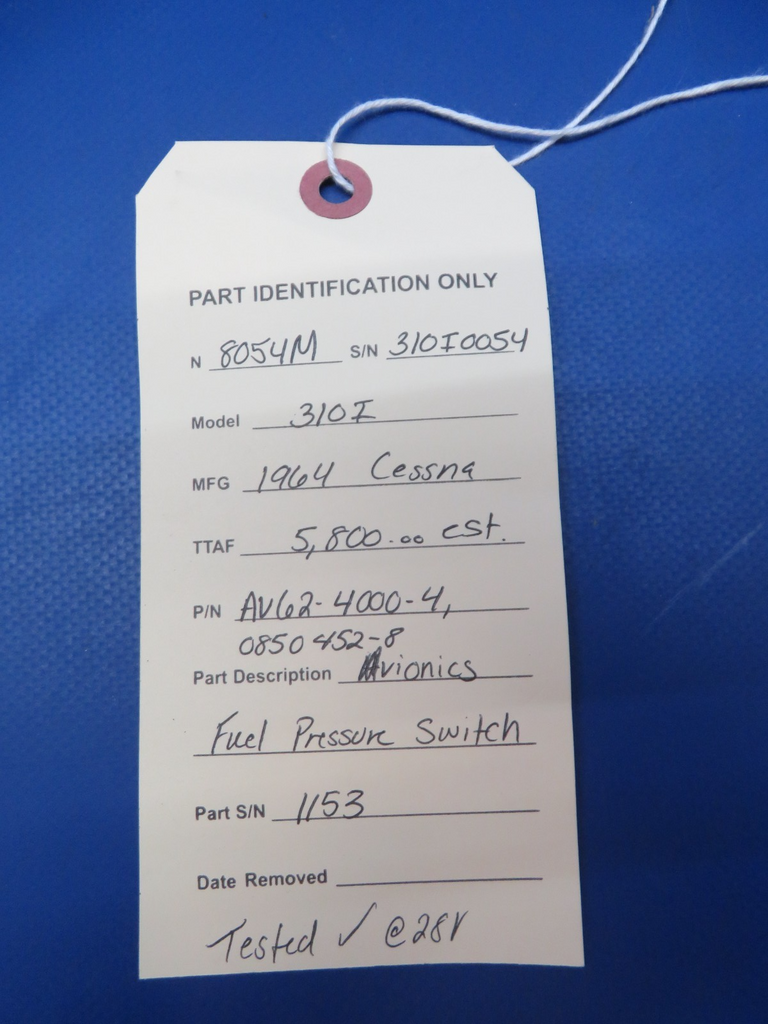 PART IDENTIFICATION ONLY
N 8054M S/N 310I0054
Model 310I
MFG 1964 Cessna
TTAF 5,800.00 est.
P/N AV62-4000-4,
0850452-8
Part Description Avionics
Fuel Pressure Switch
Part S/N 1153
Date Removed
Tested ✓ @28V